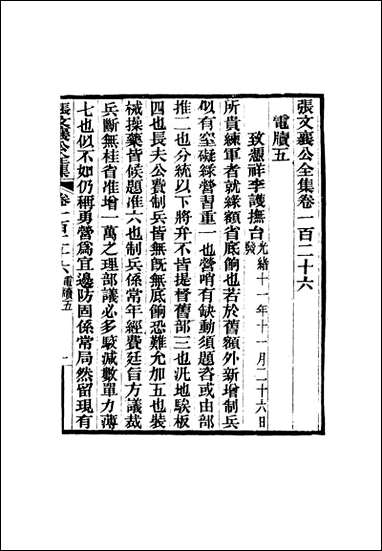 張文襄公全集卷一百二十六
電牘五
致憑祥李護撫台光緒十一年十一月二十六日發
所貴練軍者就綠額省底餉也若於舊額外新增制兵
似有窒礙綠營習重一也營哨有缺動須題咨或由部
推二也分統以下將弁不皆提督舊部三也汛地騃板
四也長夫公費制兵皆無旣無底餉恐難允加五也裝
械操藥皆候題准六也制兵係常年經費廷旨方議裁
兵斷無桂省准增一萬之理部議必多駁減數單力薄
七也似不如仍稱勇營爲宜邊防固係常局然留現有
張文襄公全集 卷一百二十六 電牘五 一